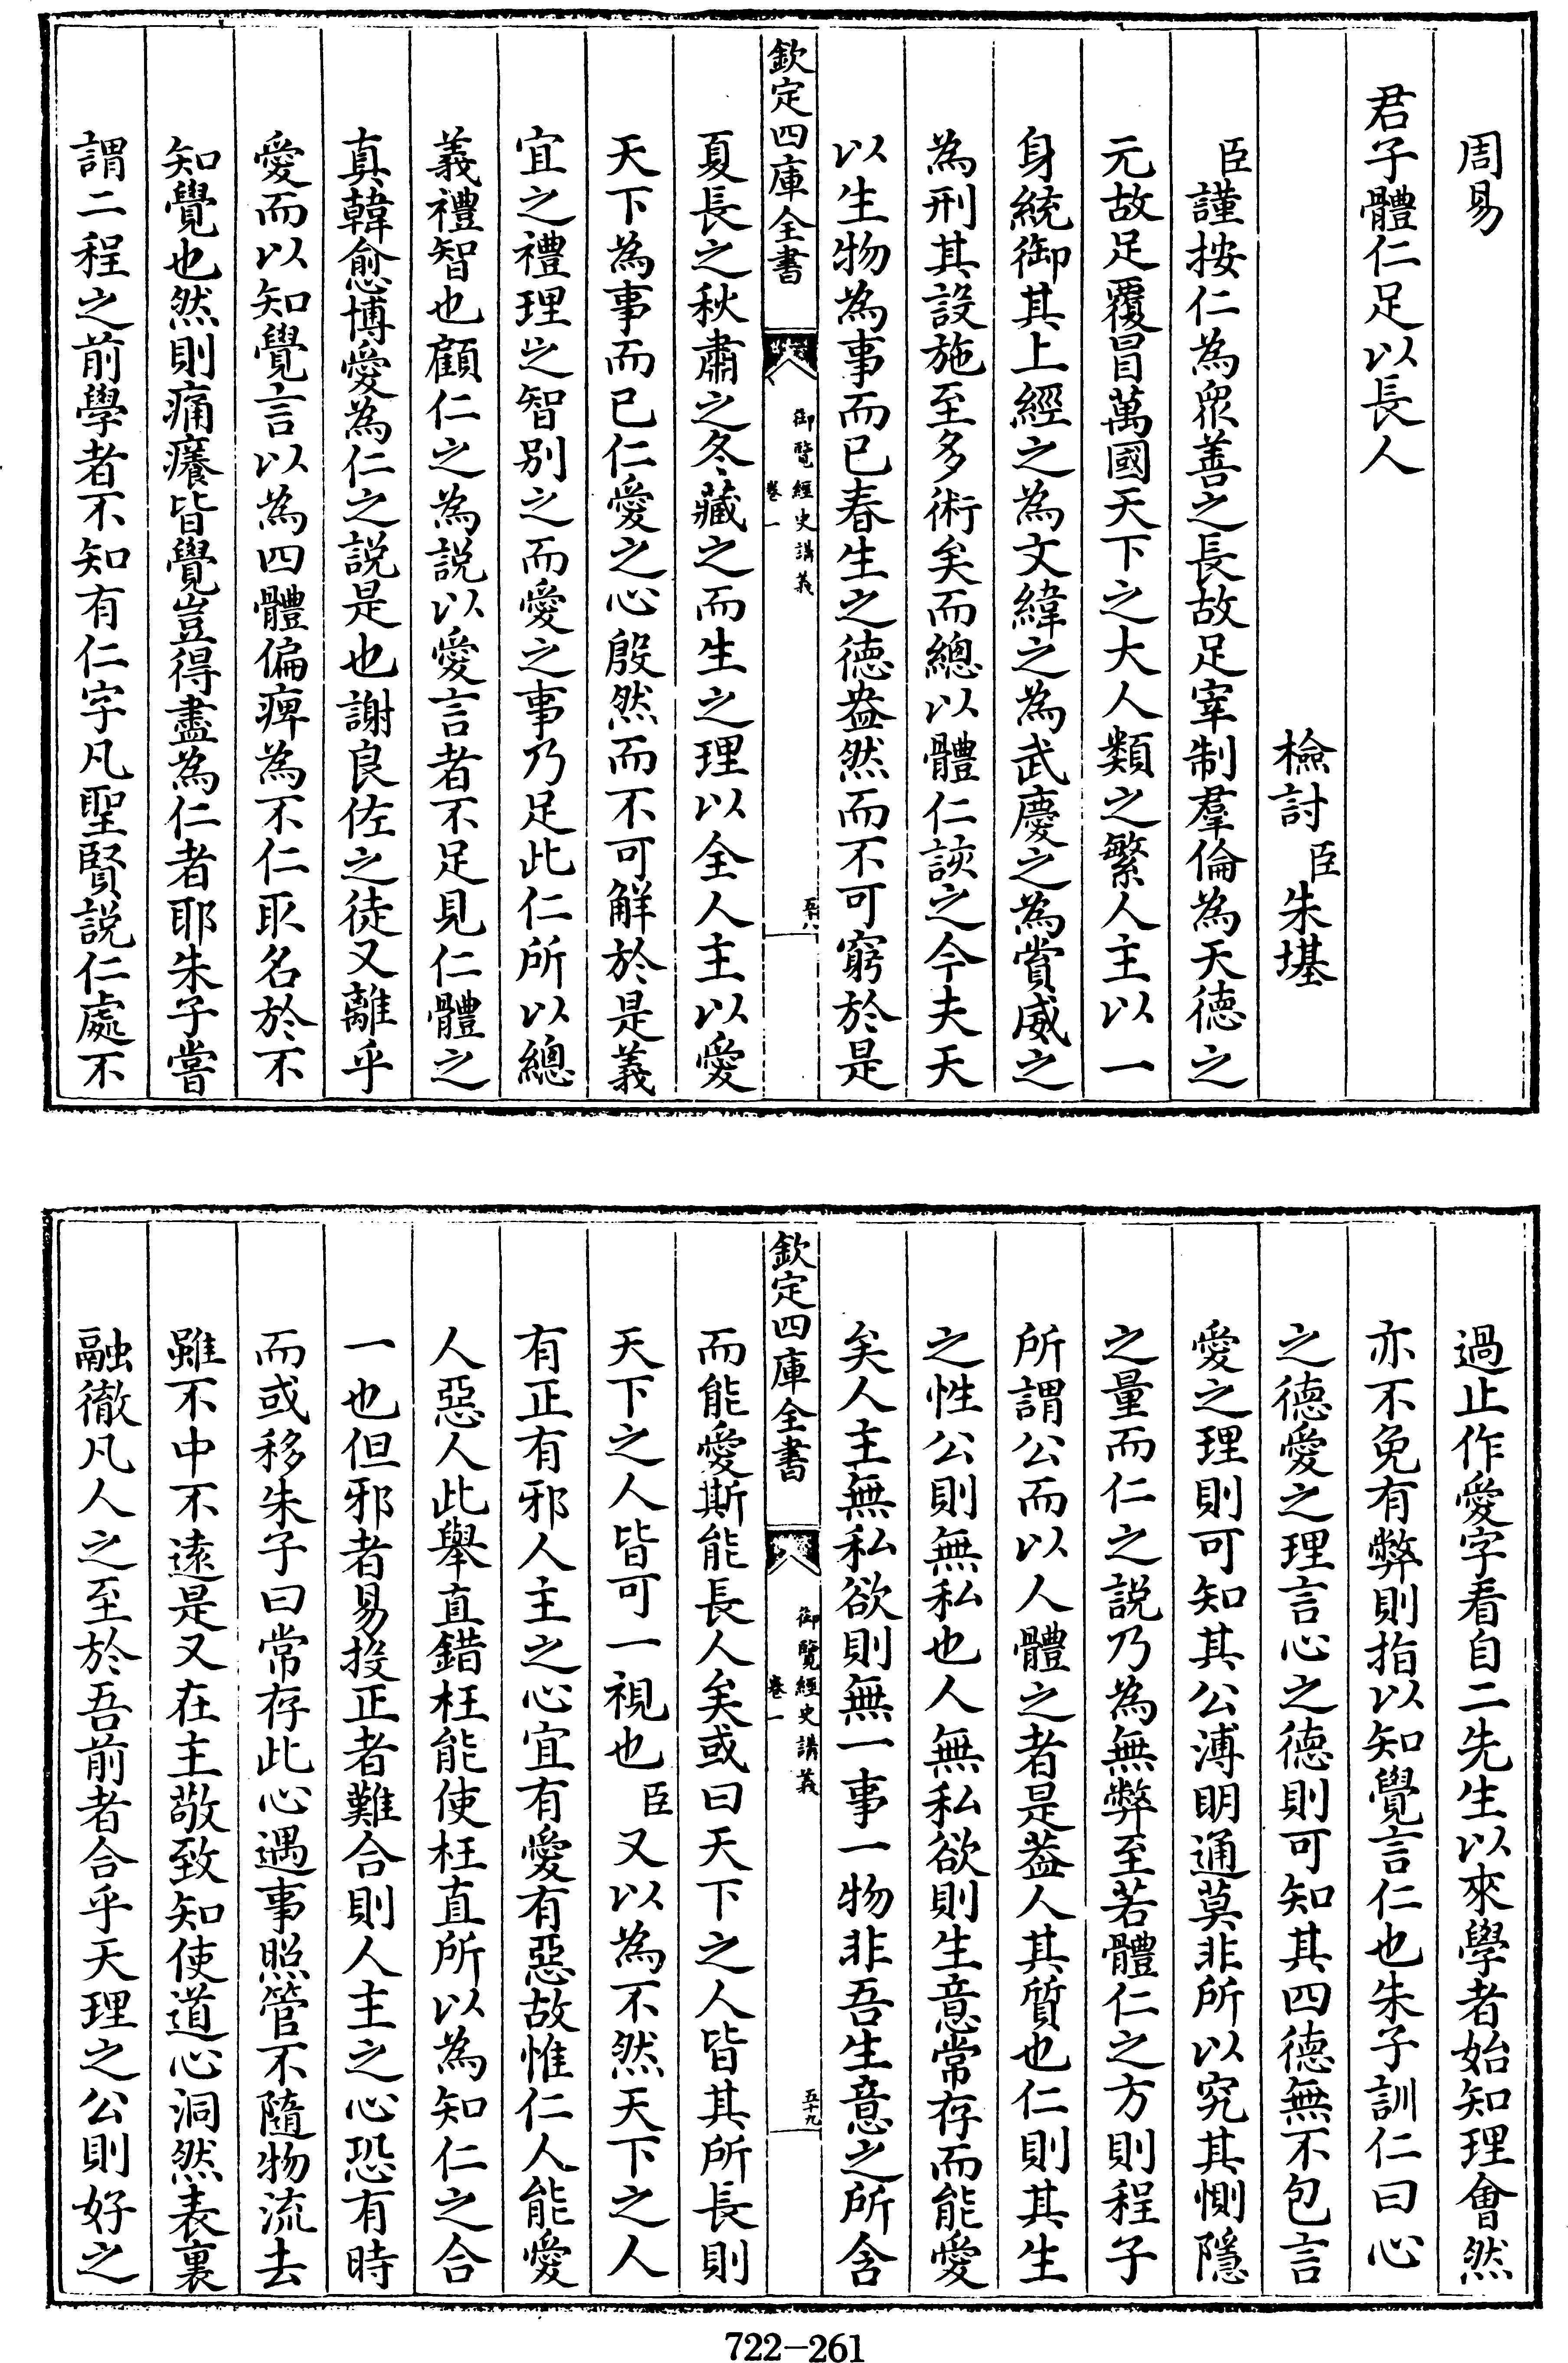 周易
君子體仁足以長人
檢討臣朱堪
臣謹按仁為衆善之長故足宰制羣倫為天德之
元故足覆冒萬國天下之大人類之繁人主以一
身統御其上經之為文緯之為武慶之為賞威之
為刑其設施至多術矣而總以體仁該之今夫天
以生物為事而已春生之德盎然而不可窮於是
欽定四庫全書
御覽經史講義
卷一
五十八
夏長之秋肅之冬藏之而生之理以全人主以愛
天下為事而已仁愛之心殷然而不可解於是義
宜之禮理之智別之而愛之事乃足此仁所以總
義禮智也顧仁之為説以愛言者不足見仁體之
真韓愈博愛為仁之説是也謝良佐之徒又離乎
愛而以知覺言以為四體偏痺為不仁取名於不
知覺也然則痛癢皆覺豈得盡為仁者耶朱子嘗
謂二程之前學者不知有仁字凡聖賢説仁處不
過止作愛字看自二先生以來學者始知理會然
亦不免有弊則指以知覺言仁也朱子訓仁曰心
之德愛之理言心之德則可知其四德無不包言
愛之理則可知其公溥明通莫非所以究其惻隱
之量而仁之説乃為無弊至若體仁之方則程子
所謂公而以人體之者是葢人其質也仁則其生
之性公則無私也人無私欲則生意常存而能愛
矣人主無私欲則無一事一物非吾生意之所含
欽定四庫全書
御覽經史講義
卷一
五十九
而能愛斯能長人矣或曰天下之人皆其所長則
天下之人皆可一視也臣又以為不然天下之人
有正有邪人主之心宜有愛有惡故惟仁人能愛
人惡人此舉直錯枉能使枉直所以為知仁之合
一也但邪者易投正者難合則人主之心恐有時
而或移朱子曰常存此心遇事照管不隨物流去
雖不中不遠是又在主敬致知使道心洞然表裏
融徹凡人之至於吾前者合乎天理之公則好之
722-261